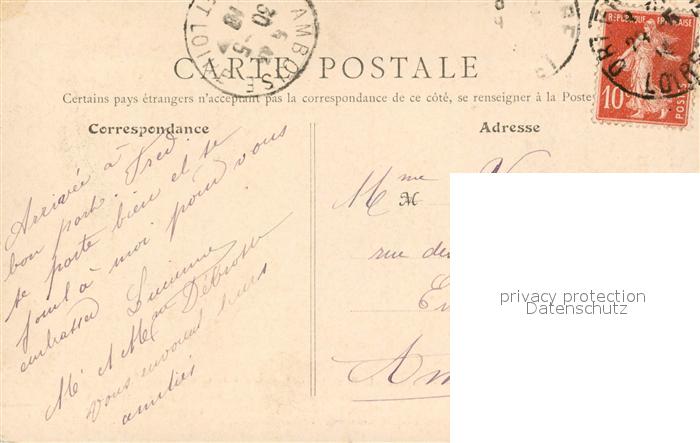 AMBOISE
ET LOIRE
CARTE POSTALE
Certains pays étrangers n'acceptant pas la correspondance de ce côté, se renseigner à la Poste
RÉPUBLIQUE FRANÇAISE
10
POSTES
Correspondance
Adresse
Arrivée à
bon port. Fred.
se porte bien et se
joint à moi pour vous
embrasser Lucienne
Mr et Mme
vous envoient leurs
amitiés
Mme V
M
rue de
privacy protection
Datenschutz